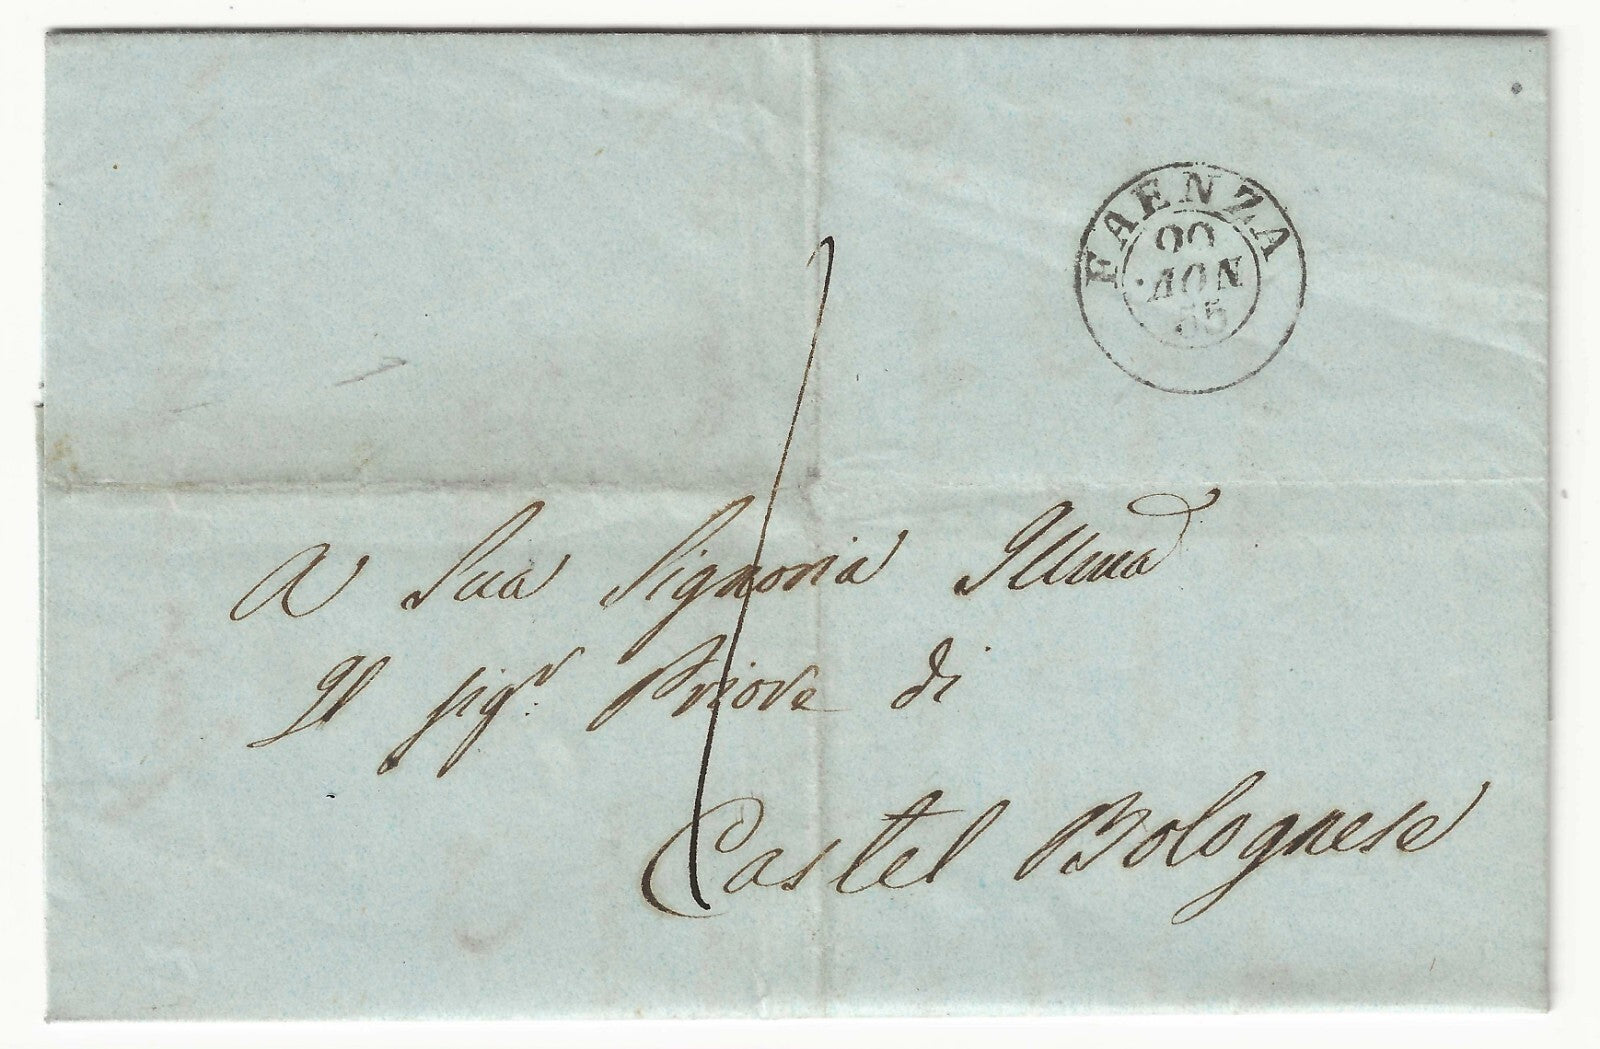 FAENZA
NOV
55
A Sua Signoria Illma
Il Sigr. Priore di
Castel Bolognese